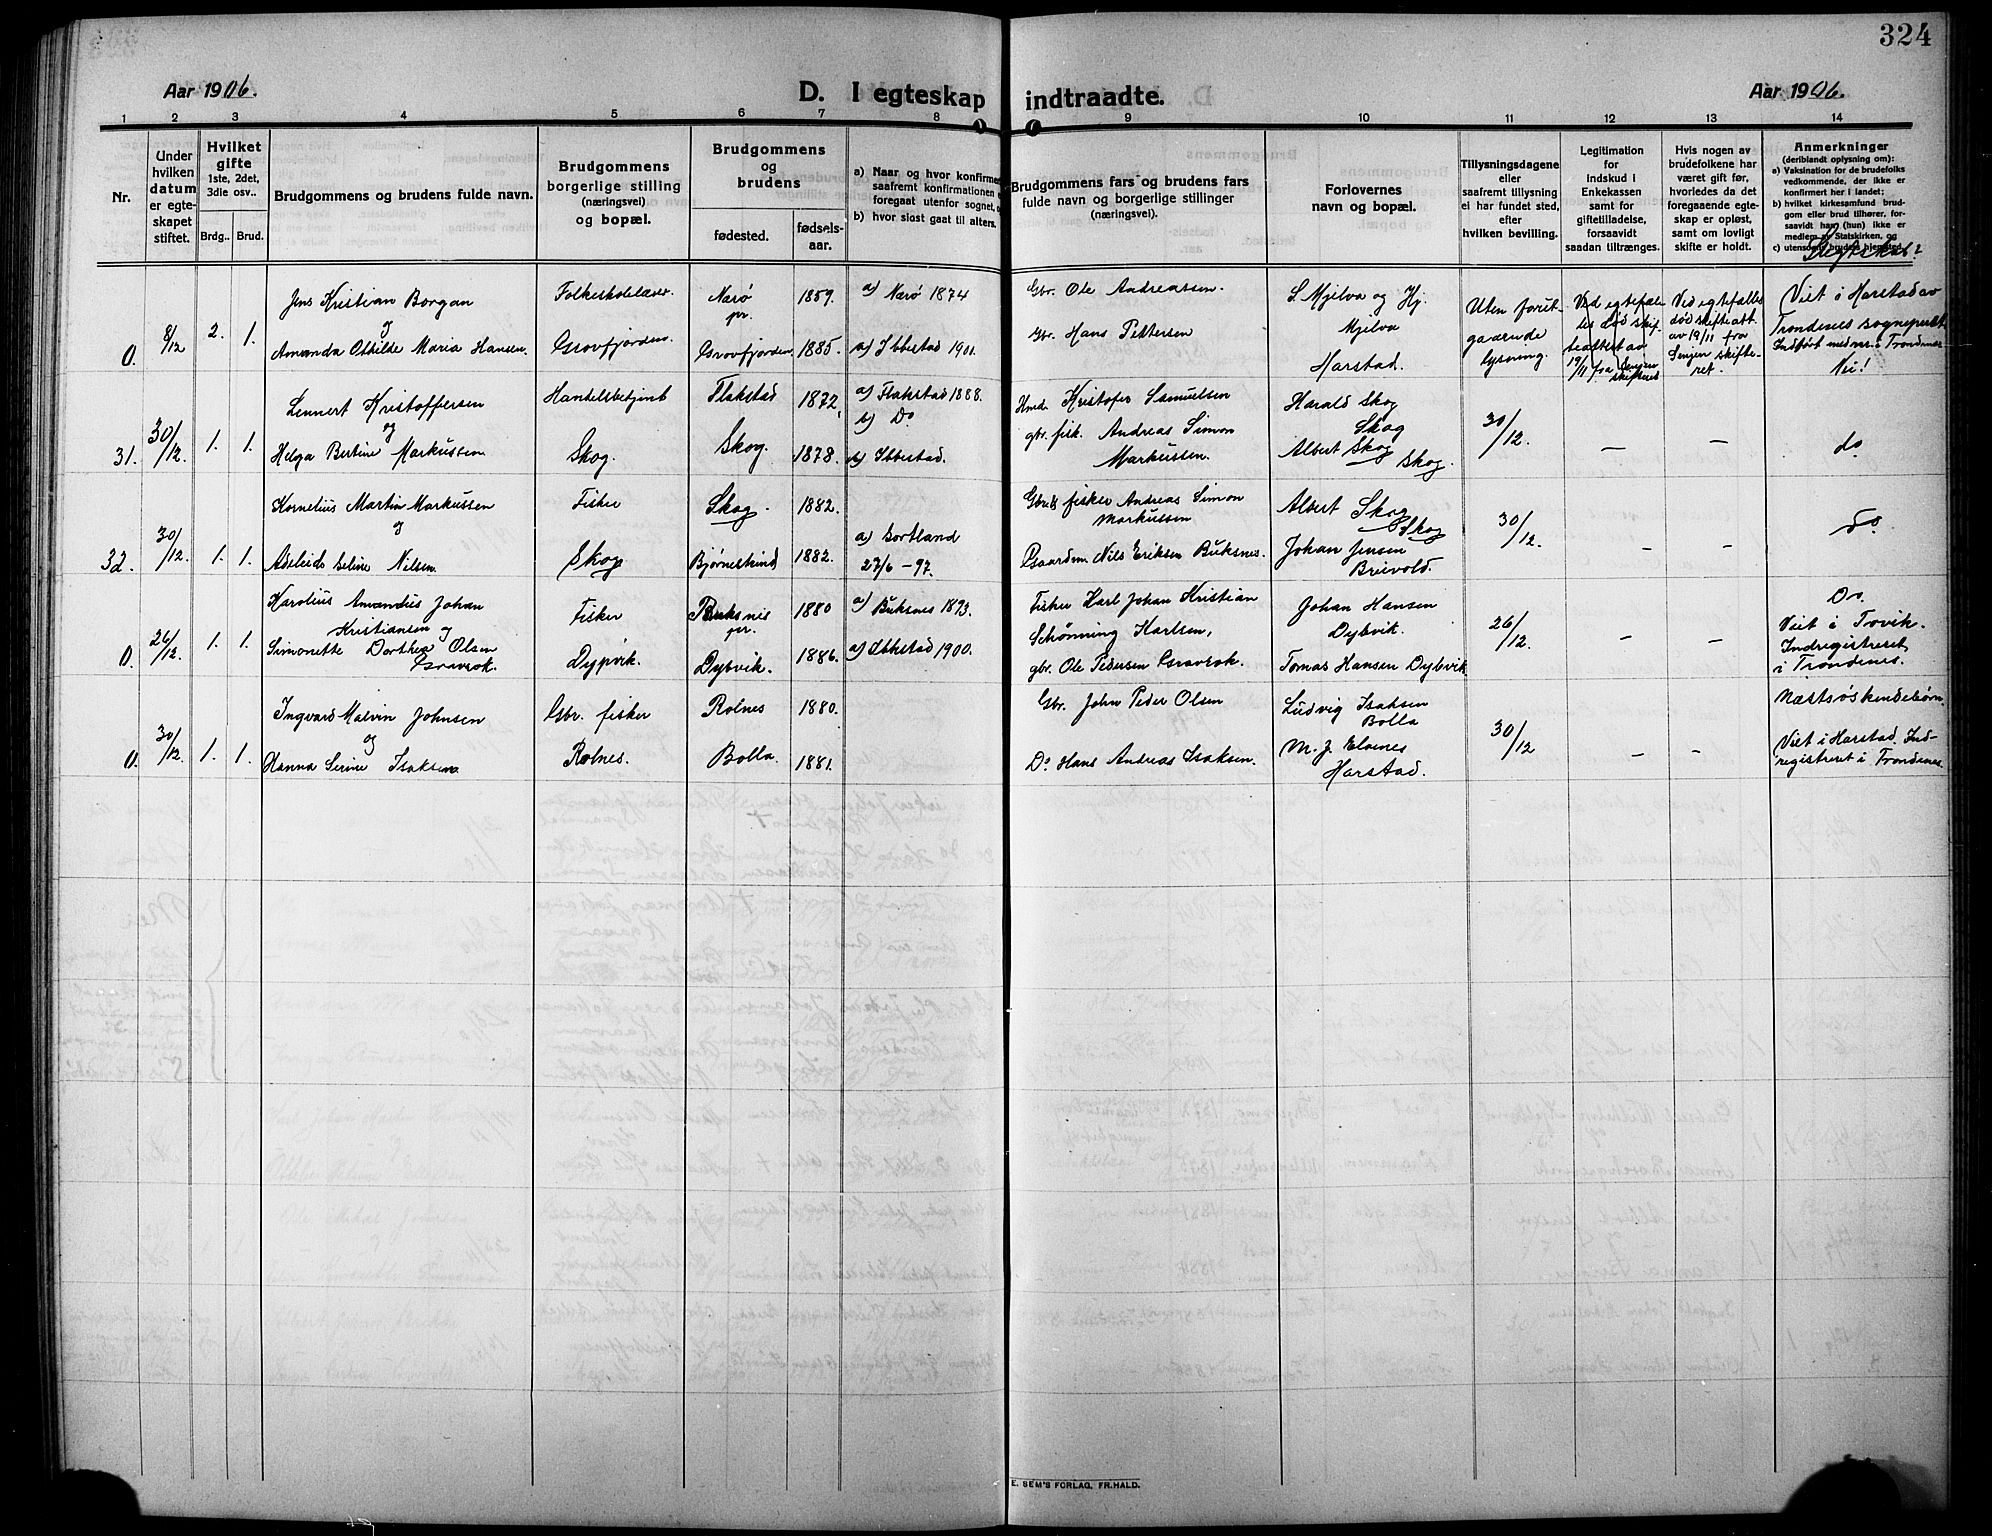 324
Aar 1906.
D. I egteskap indtraadte.
Aar 1906.
1 2 3 4 5 6 7 8 9 10 11 12 13 14
Nr.
Under hvilken datum er egteskapet stiftet.
Hvilket gifte 1ste, 2det, 3die osv..
Brdg.. Brud.
Brudgommens og brudens fulde navn.
Brudgommens borgerlige stilling (næringsvei) og bopæl.
Brudgommens og brudens
fødested. fødselsaar.
a) Naar og hvor konfirme
saafremt konfirmationen
foregaat utenfor sognet,
b) hvor sidst gaat til alters.
Brudgommens fars og brudens fars
fulde navn og borgerlige stillinger
(næringsvei).
Forlovernes
navn og bopæl.
Tillysningsdagene
eller
saafremt tillysning
ei har fundet sted,
efter
hvilken bevilling.
Legitimation
for
indskud i
Enkekassen
samt for
giftetilladelse,
forsaavidt
saadan tiltrænges.
Hvis nogen av
brudefolkene har
været gift før,
hvorledes da det
foregaaende egteskap er opløst,
samt om lovligt
skifte er holdt.
Anmerkninger
(deriblandt oplysning om):
a) Vaksination for de brudefolks
vedkommende, der ikke er
konfirmert her i landet;
b) hvilket kirkesamfund brudgom eller brud tilhører, forsaavidt han (hun) ikke er
medlem av Statskirken, og
c) utensogns brudens hjemsted.
Slegtskab?
0. 8/12 2. 1.
Jens Kristian Borgan
og
Amanda Othilde Maria Hansen.
Folkeskolelærer.
Grovfjorden.
Nærø pr. 1859.
Grovfjorden. 1885.
a) Nærø 1874
a) Ibbestad 1901.
Gbr. Ole Andreassen.
Gbr. Hans Pettersen
S. Mjelva og Hj.
Mjelva
Harstad.
Uten forutgaaende
lysning.
Ved egtefælles død skifteattest av
19/11 fra Senjen
skifteret
Ved egtefælles
død skifteatt.
av 19/11 fra
Senjen skifteret.
Viet i Harstad av
Trondenes sogneprest
Indført med nr. i Trondenes
Nei!
31. 30/12. 1. 1.
Lennert Kristoffersen
og
Helga Bertine Markussen
Handelsbetjent
Skog.
Flakstad 1872,
Skog. 1878.
a) Flakstad 1888.
b) Do
b) Ibbestad.
Hmd. Kristofer Samuelsen
gbr. fisk. Andreas Simon
Markussen.
Harald Skog
Skog
Albert Skog
Skog.
30/12.
— —
do
32. 30/12. 1. 1.
Kornelius Martin Markussen
og
Adeleide Seline Nilsen.
Fisker
Skog
Skog. 1882.
Bjørneskind 1882.
a) Sortland
27/6 – 97.
Gbruk fisker Andreas Simon
Markussen
Gaardm. Nils Eriksen Buksnes.
Albert Skog
Skog
Johan Jensen
Breivold.
30/12.
- -
Do
0. 26/12. 1. 1.
Karolius Amandus Johan
Kristiansen og
Simonette Dorthea Olsen
Gravrok.
Fisker
Dypvik.
Buksnes pr. 1880
Dybvik. 1886.
a) Buksnes 1893.
a) Ibbestad 1900.
Fisker Karl Johan Kristian
Schønning Karlsen,
gbr. Ole Pedersen Gravrok.
Johan Hansen
Dybvik.
Tomas Hansen Dybvik
26/12.
- -
Do.
Viet i Tovik.
Indregistreret
i Trondenes.
0. 30/12. 1. 1.
Ingvard Malvin Johnsen
og
Hanna Serine Isaksen
Gbr. fisker
Rolnes.
Rolnes 1880.
Bolla. 1881.
Gbr. John Peder Olsen
Do Hans Andreas Isaksen.
Ludvig Isaksen
Bolla
M. J. Elvenes
Harstad.
30/12
- -
Næstsøskendebørn
Viet i Harstad. Indregistreret i Trondenes.
E. SEM'S FORLAG, FR.HALD.